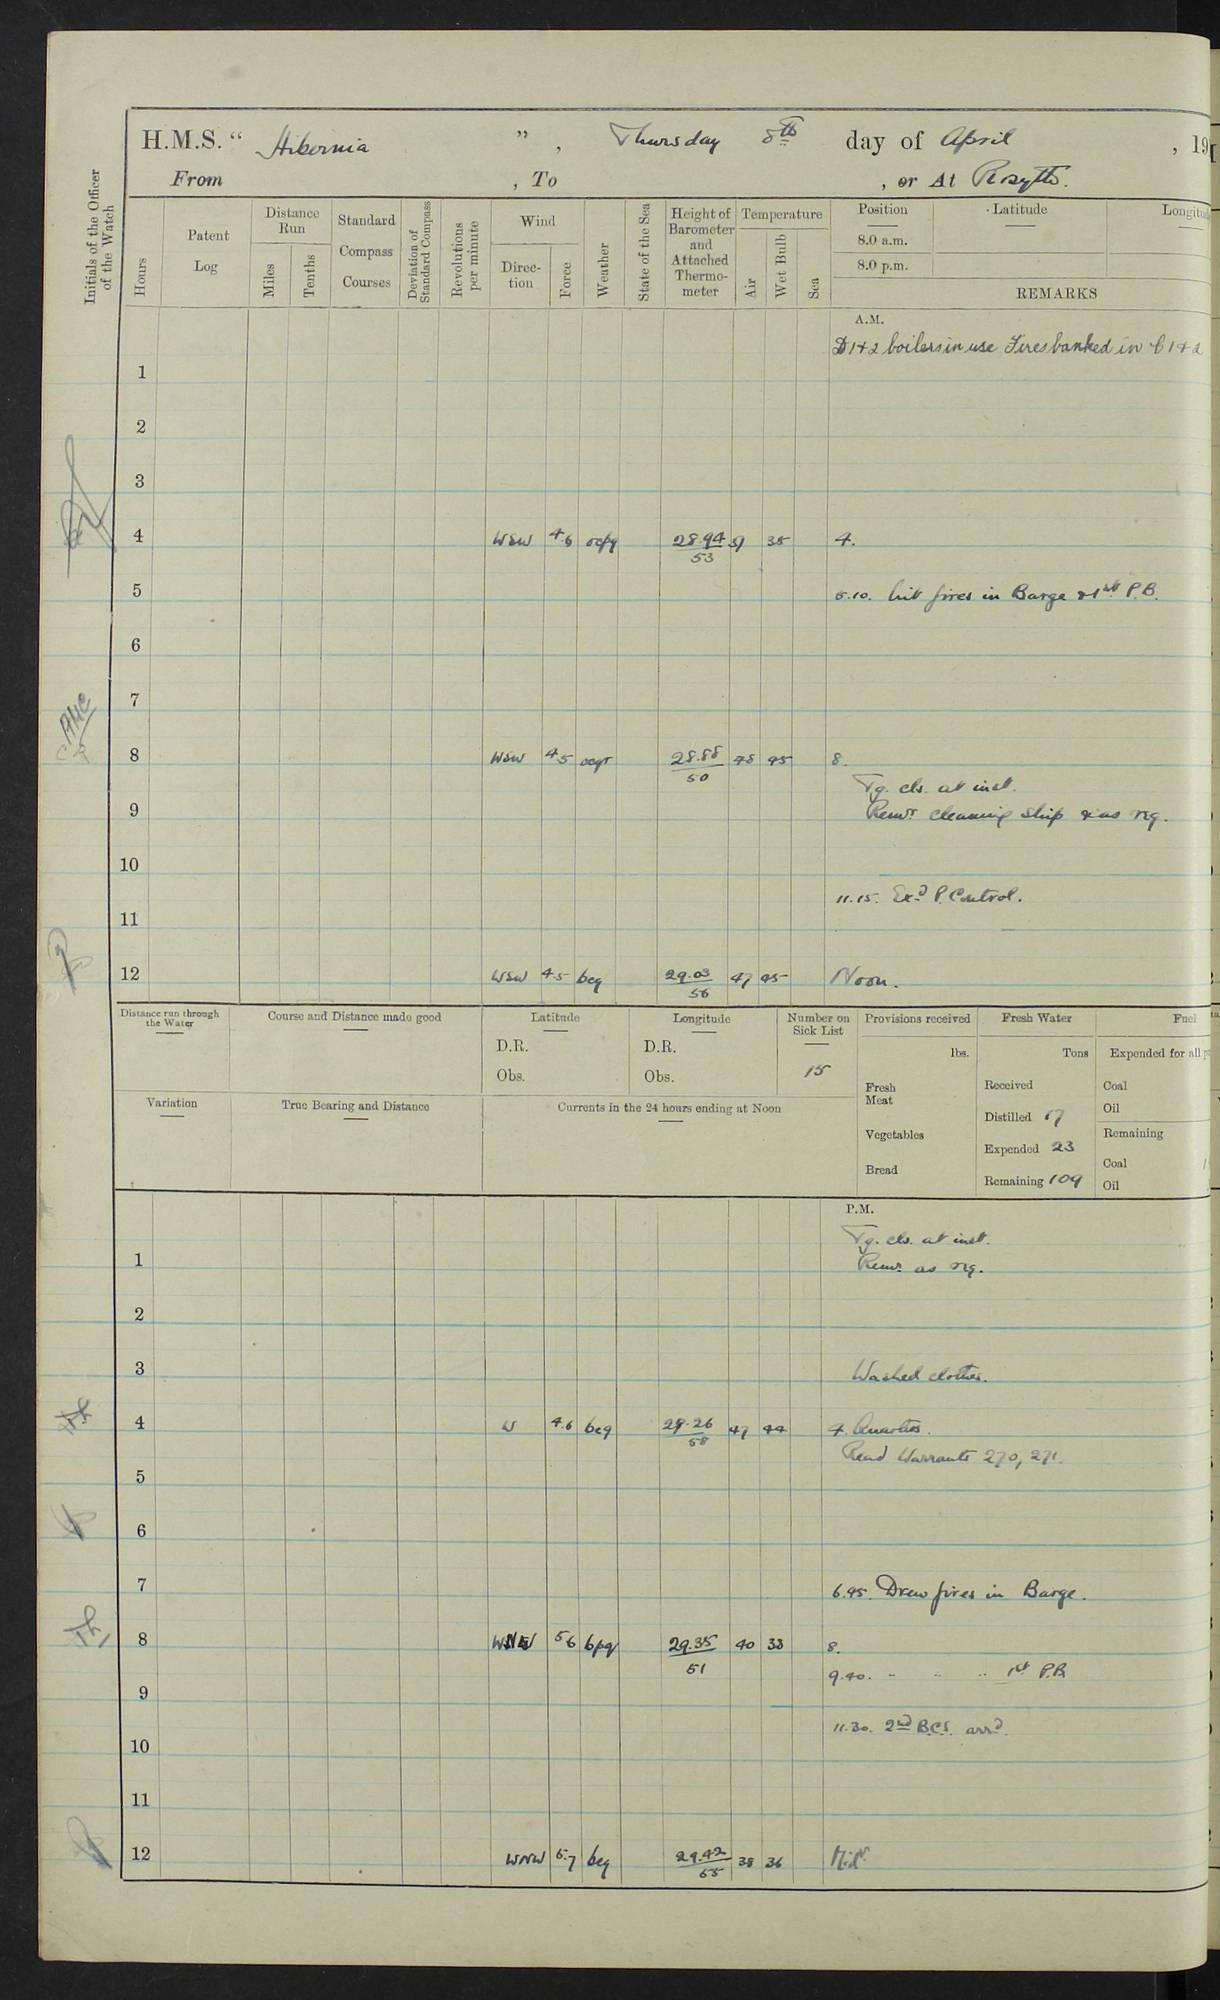 H.M.S. “ Hibernia ” , Thursday 8th day of April , 19
From , To , or At Rosyth.
Initials of the Officer of the Watch
Hours
Patent Log
Distance Run
Miles
Tenths
Standard Compass Courses
Deviation of Standard Compass
Revolutions per minute
Wind
Direc- tion
Force
Weather
State of the Sea
Height of Barometer and Attached Thermo- meter
Temperature
Air
Wet Bulb
Sea
Position
Latitude
8.0 a.m.
8.0 p.m.
REMARKS
A.M.
D 1+2 boilers in use Fires banked in C 1+2
1
2
3
4 WSW 4.6 28.94 51 35 4.
53
5
5.10. Lit fires in Barge & 1st P.B.
6
7
8 WSW 4.5 28.88 48 45 8.
50
Tg. cls. at inst.
9
Remr. cleaning ship & as req.
10
11.15. Exd P. Control.
11
12 WSW 4.5 bcq 29.03 47 45 Noon.
56
Distance run through the Water
Course and Distance made good
Latitude
D.R.
Obs.
Longitude
D.R.
Obs.
Number on Sick List
15
Provisions received
lbs.
Fresh Meat
Vegetables
Bread
Fresh Water
Tons
Received
Distilled 17
Expended 23
Remaining 109
Fuel
Expended for all
Coal
Oil
Remaining
Coal
Oil
Variation
True Bearing and Distance
Currents in the 24 hours ending at Noon
P.M.
Tg. cls. at inst.
1
Remr. as req.
2
3
Washed clothes.
4 W 4.6 bcq 29.26 47 44 4. Quarters.
58
Read Warrants 270, 271.
5
6
7
6.45. Drew fires in Barge.
8 5.6 bpq 29.35 40 33 8.
51
9.40. " " " 1st P.B.
9
11.30. 2nd B.C.S. arrd.
10
11
12 WNW 5.7 bcq 29.42 38 36 Midt.
55